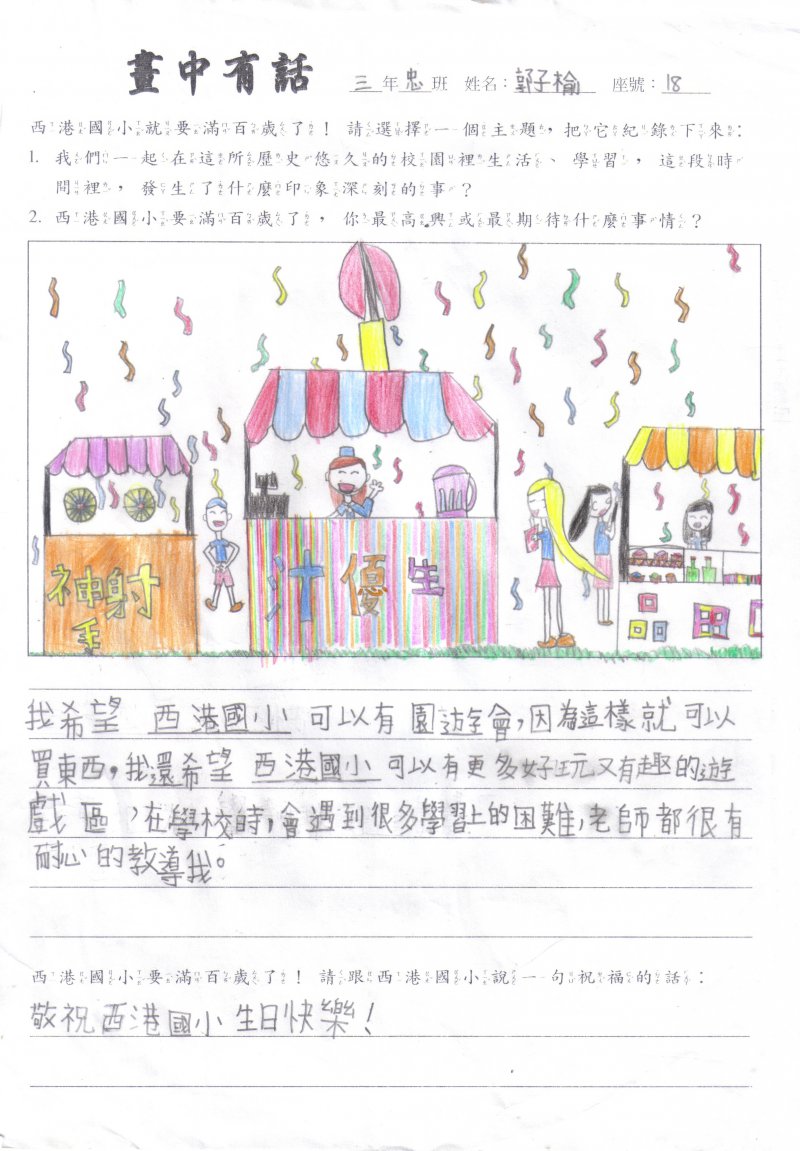 畫中有話 三年忠班 姓名：郭子榆 座號：18
西港國小就要滿百歲了！請選擇一個主題，把它紀錄下來：
1. 我們一起在這所歷史悠久的校園裡生活、學習，這段時
間裡，發生了什麼印象深刻的事？
2. 西港國小要滿百歲了，你最高興或最期待什麼事情？
神射
手
汁優生
我希望 西港國小 可以有園遊會，因為這樣就可以
買東西，我還希望 西港國小 可以有更多好玩又有趣的遊
戲區，在學校時，會遇到很多學習上的困難，老師都很有
耐心的教導我。
西港國小要滿百歲了！請跟西港國小說一句祝福的話：
敬祝西港國小生日快樂！